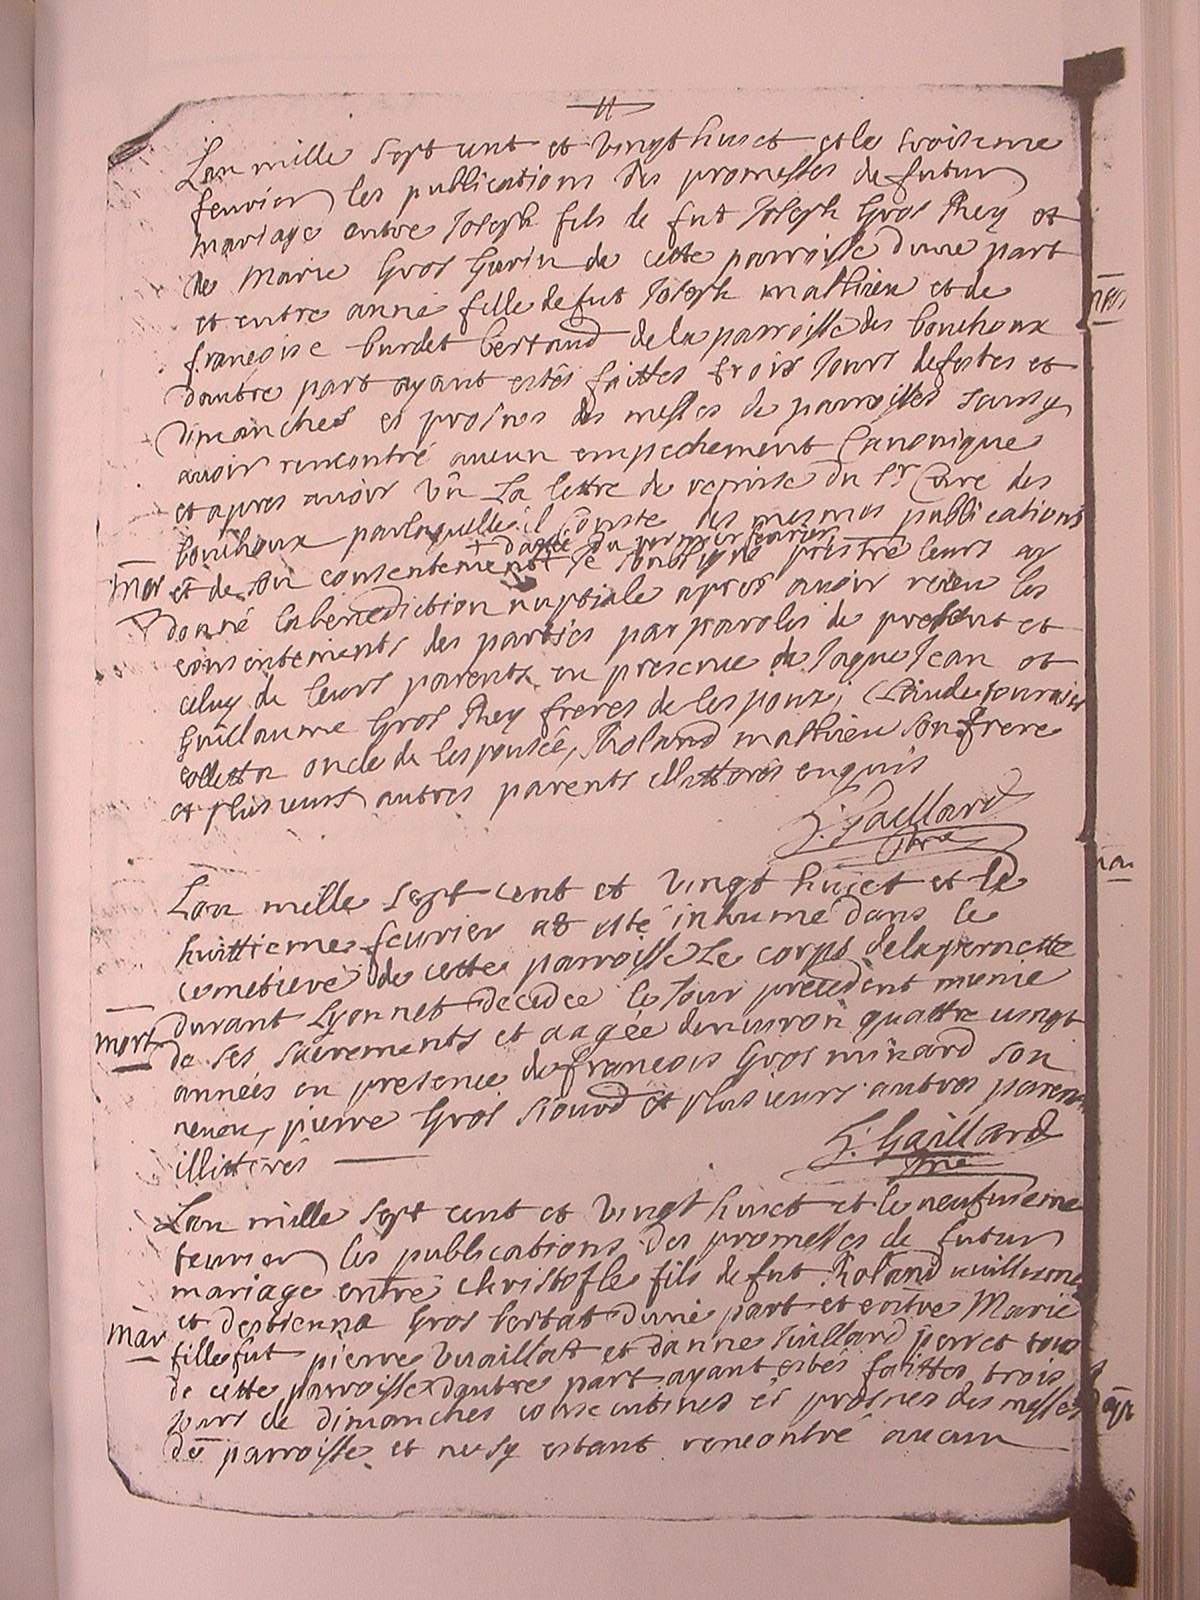 Lan mille sept cent et vingt huict et le troisieme
feuvrier les publications des promesses de futur
mariage entre Joseph fils de fut Joseph Gros Rhey et
de Marie Gros Gurin de cette parroisse dune part
et entre anne fille de fut Joseph mathieu et de
françoise burdet bertaud de la parroisse des bouchoux
dautre part ayant estés faittes trois Jours de festes et
dimanches es prosnes des messes de parroisses sans y
avoir rencontré aucun empechement Canonique
et apres avoir vû La lettre de reprise du Sr Curé des
bouchoux par laquelle il conste des mesmes publications
+ dattée du premier feuvrier
Mar et de son consentement + Je soubsigné prestre leurs ay
donné la benediction nuptiale apres avoir receu les
consentements des parties par paroles de present et
celuy de leurs parents en presence de Jaque Jean et
Guillaume Gros Rhey freres de lespoux, Claude
colletta oncle de lespousée, Roland mathieu son frere
et plusieurs autres parents illitterés enquis
J. Gaillard
ptre
Lan mille sept cent et vingt huict et le
huittieme feuvrier at esté inhumé dans le
cemetiere de cette parroisse Le corps de la pernette
durant Lyonnet decedée le Jour precedent munie
mort de ses sacrements et aagée denviron quattre vingt
années en presence de françois Gros
son
neueu, pierre Gros et plusieurs autres parens
illitterés
J. Gaillard
ptre
Lan mille sept cent et vingt huict et le neufuieme
feuvrier les publications des promesses de futur
mariage entre Christofle fils de fut Roland vuillerme
et destienna Gros dune part et entre Marie
Mar fille fût pierre Vuaillat et danne Juillard perret tous
de cette parroisse dautre part ayant estés faittes trois
Jours de dimanches consecutives es prosnes des messes
de parroisse et ne sy estant rencontré aucun